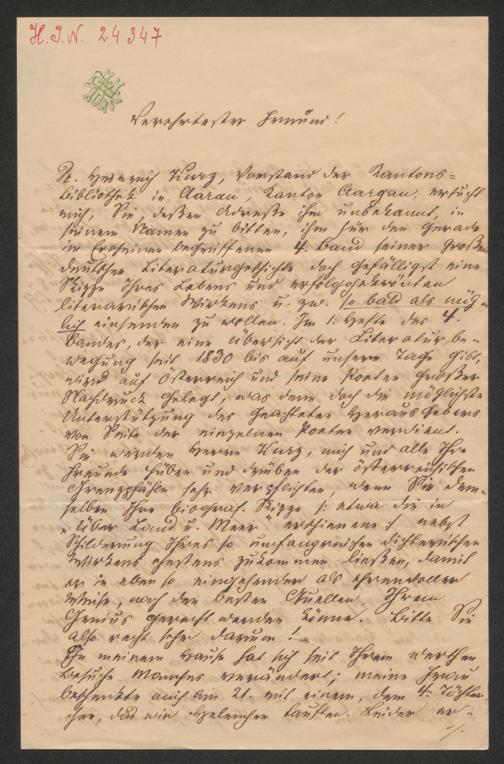 H. I. N. 24347
Verehrtester Freund!
Dr. Heinrich Kurz, Vorstand der Kantons-
bibliothek in Aarau, Kanton Aargau, ersucht
mich, Sie, dessen Adresse ihm unbekannt, in
seinem Namen zu bitten, ihm für den gerade
im Erscheinen begriffenen 4. Band seiner großen
deutschen Literaturgeschichte doch gefälligst eine
Skizze Ihres Lebens und erfolggekrönten
literarischen Wirkens u. zw. so bald als mög-
lich einsenden zu wollen. Im 1. Hefte des 4.
Bandes, der eine Übersicht der Literaturbe-
wegung seit 1830 bis auf unsere Tage gibt,
wird auf Österreich und seine Poeten großer
Nachdruck gelegt, was denn doch die möglichste
Unterstützung des geachteten Herausgebers
von Seite der einzelnen Poeten verdient.
Sie werden Herrn Kurz, mich und alle Ihre
Freunde hüben und drüben der österreichischen
Grenzpfähle sehr verpflichten, wenn Sie dem-
selben Ihre biograf. Skizze /: etwa die in
"Über Land u. Meer" erschienene :/ nebst
Schilderung Ihres so umfangreichen dichterischen
Wirkens ehestens zukommen ließen, damit
er in eben so eingehender als ehrenvoller
Weise, nach den besten Quellen, Ihrem
Genius gerecht werden könne. Bitte Sie
also recht sehr darum!
In meinem Hause hat sich seit Ihrem werthen
Besuche Manches verändert; meine Frau
beschenkte mich am 21. mit einem, dem 4. Töchter-
chen, das wir Helenchen tauften. Leider er-